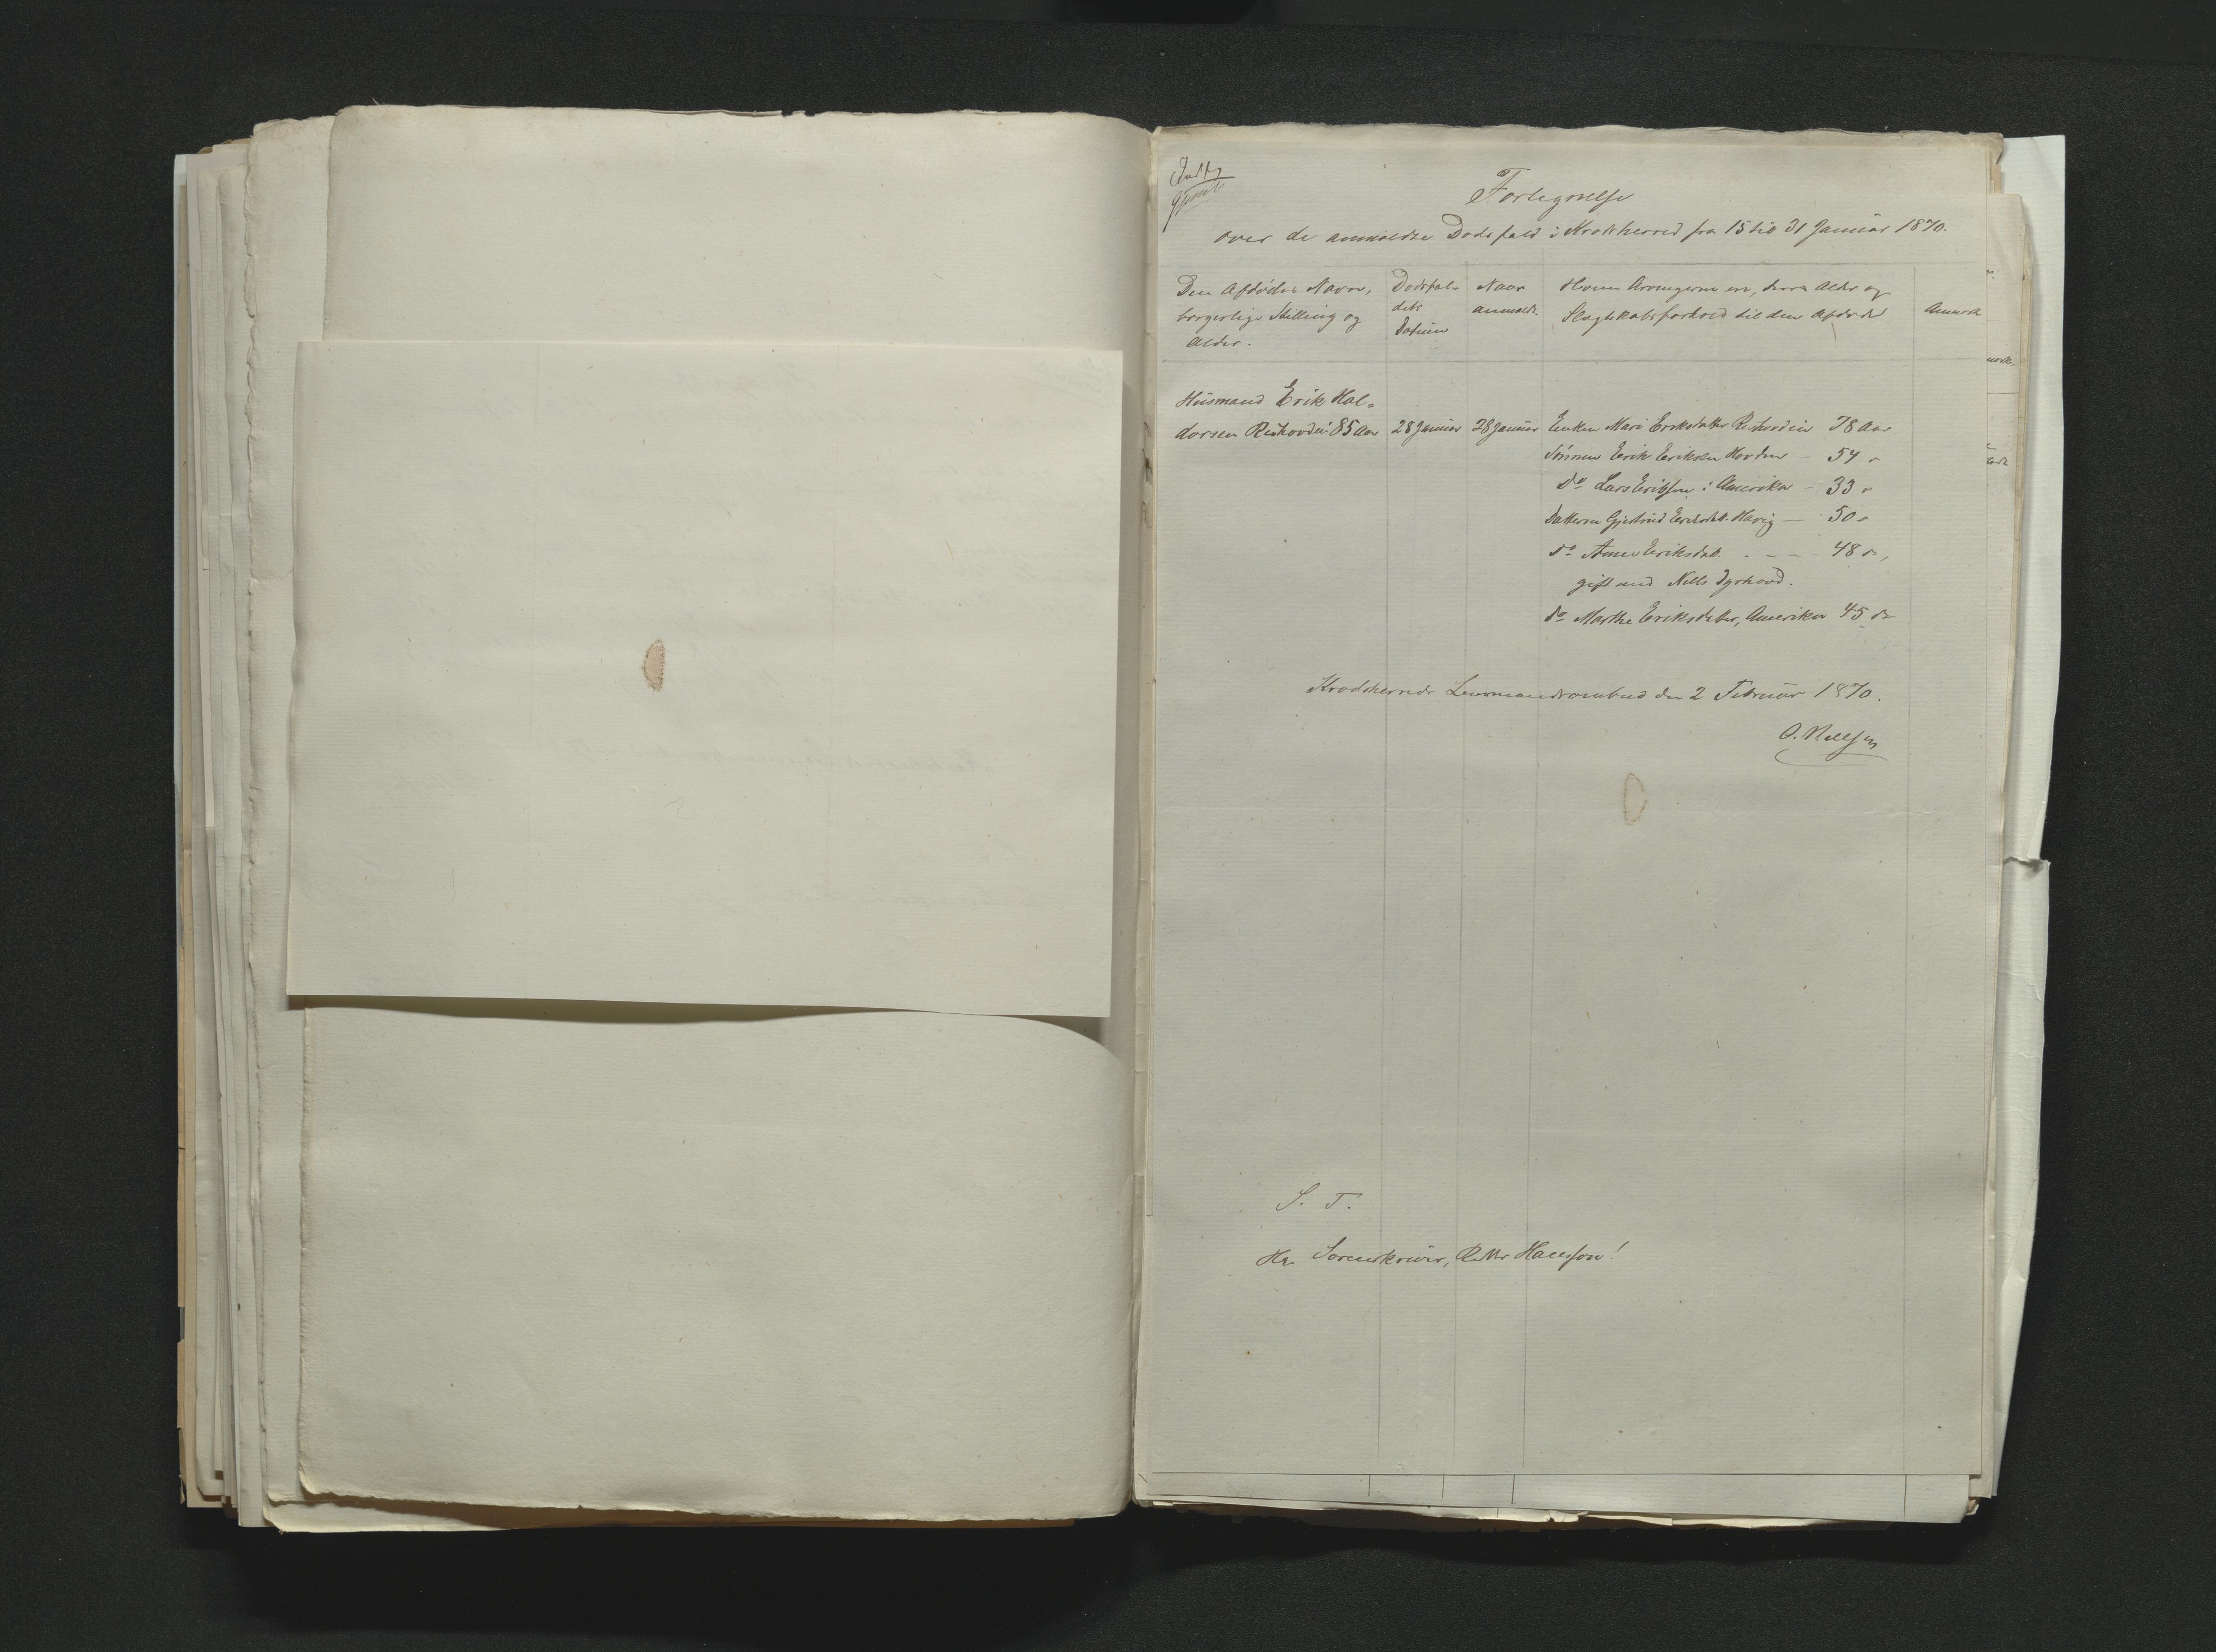 Fortegnelse
over de anmeldte Dødsfald i Krødsherred fra 15 til 31 Januar 1870.
Den Afdødes Navn,
borgerlige Stilling og
Alder.
Dødsfal-
dets
Datum
Naar
anmeldt.
Hvem Arvingerne ere, deres Alder og
Slægtskabsforhold til den Afdøde
Anmærk
Husmand Erik Hal-
dorsen 85 Aar
28 Januar
28 Januar
Enken Mari Eriksdatter 78 Aar
Sønnen Erik Eriksen Hovden - 54 "
do Lars Eriksen i Amerika - 33 "
Datteren Gjertrud Eriksdatt. - 50 "
do Anne Eriksdatt. - - - 48 ",
gift med Nells
do Marthe Eriksdatter, Amerika 45 "
Krødsherreds Lensmandsombud den 2 Februar 1870.
O. Nellsen
S. T.
Hr. Sorenskriver, Ridder